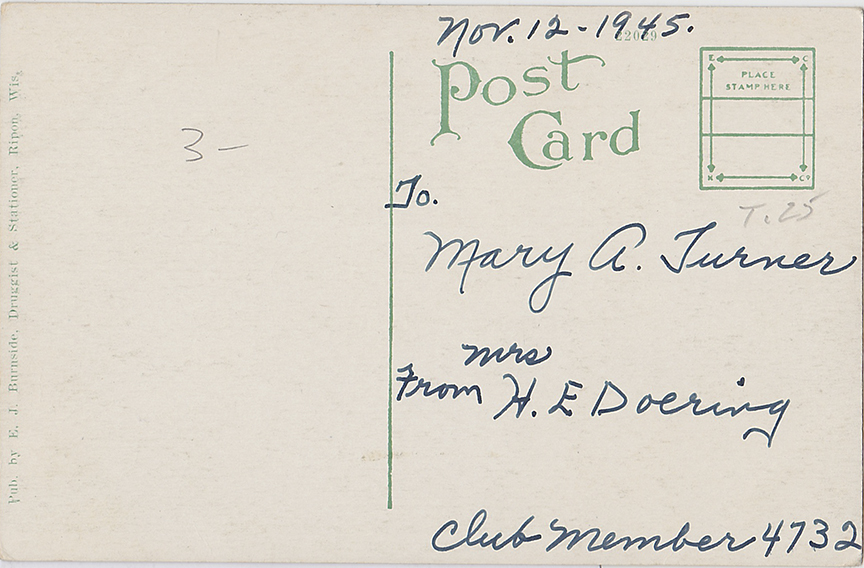 Nov. 12-1945.
Post
Card
E C
PLACE
STAMP HERE
K Co
T.25
3-
Pub. by E. J. Burnside, Druggist & Stationer, Ripon, Wis.
To.
Mary A. Turner
Mrs
From H. E Doering
Club Member 4732